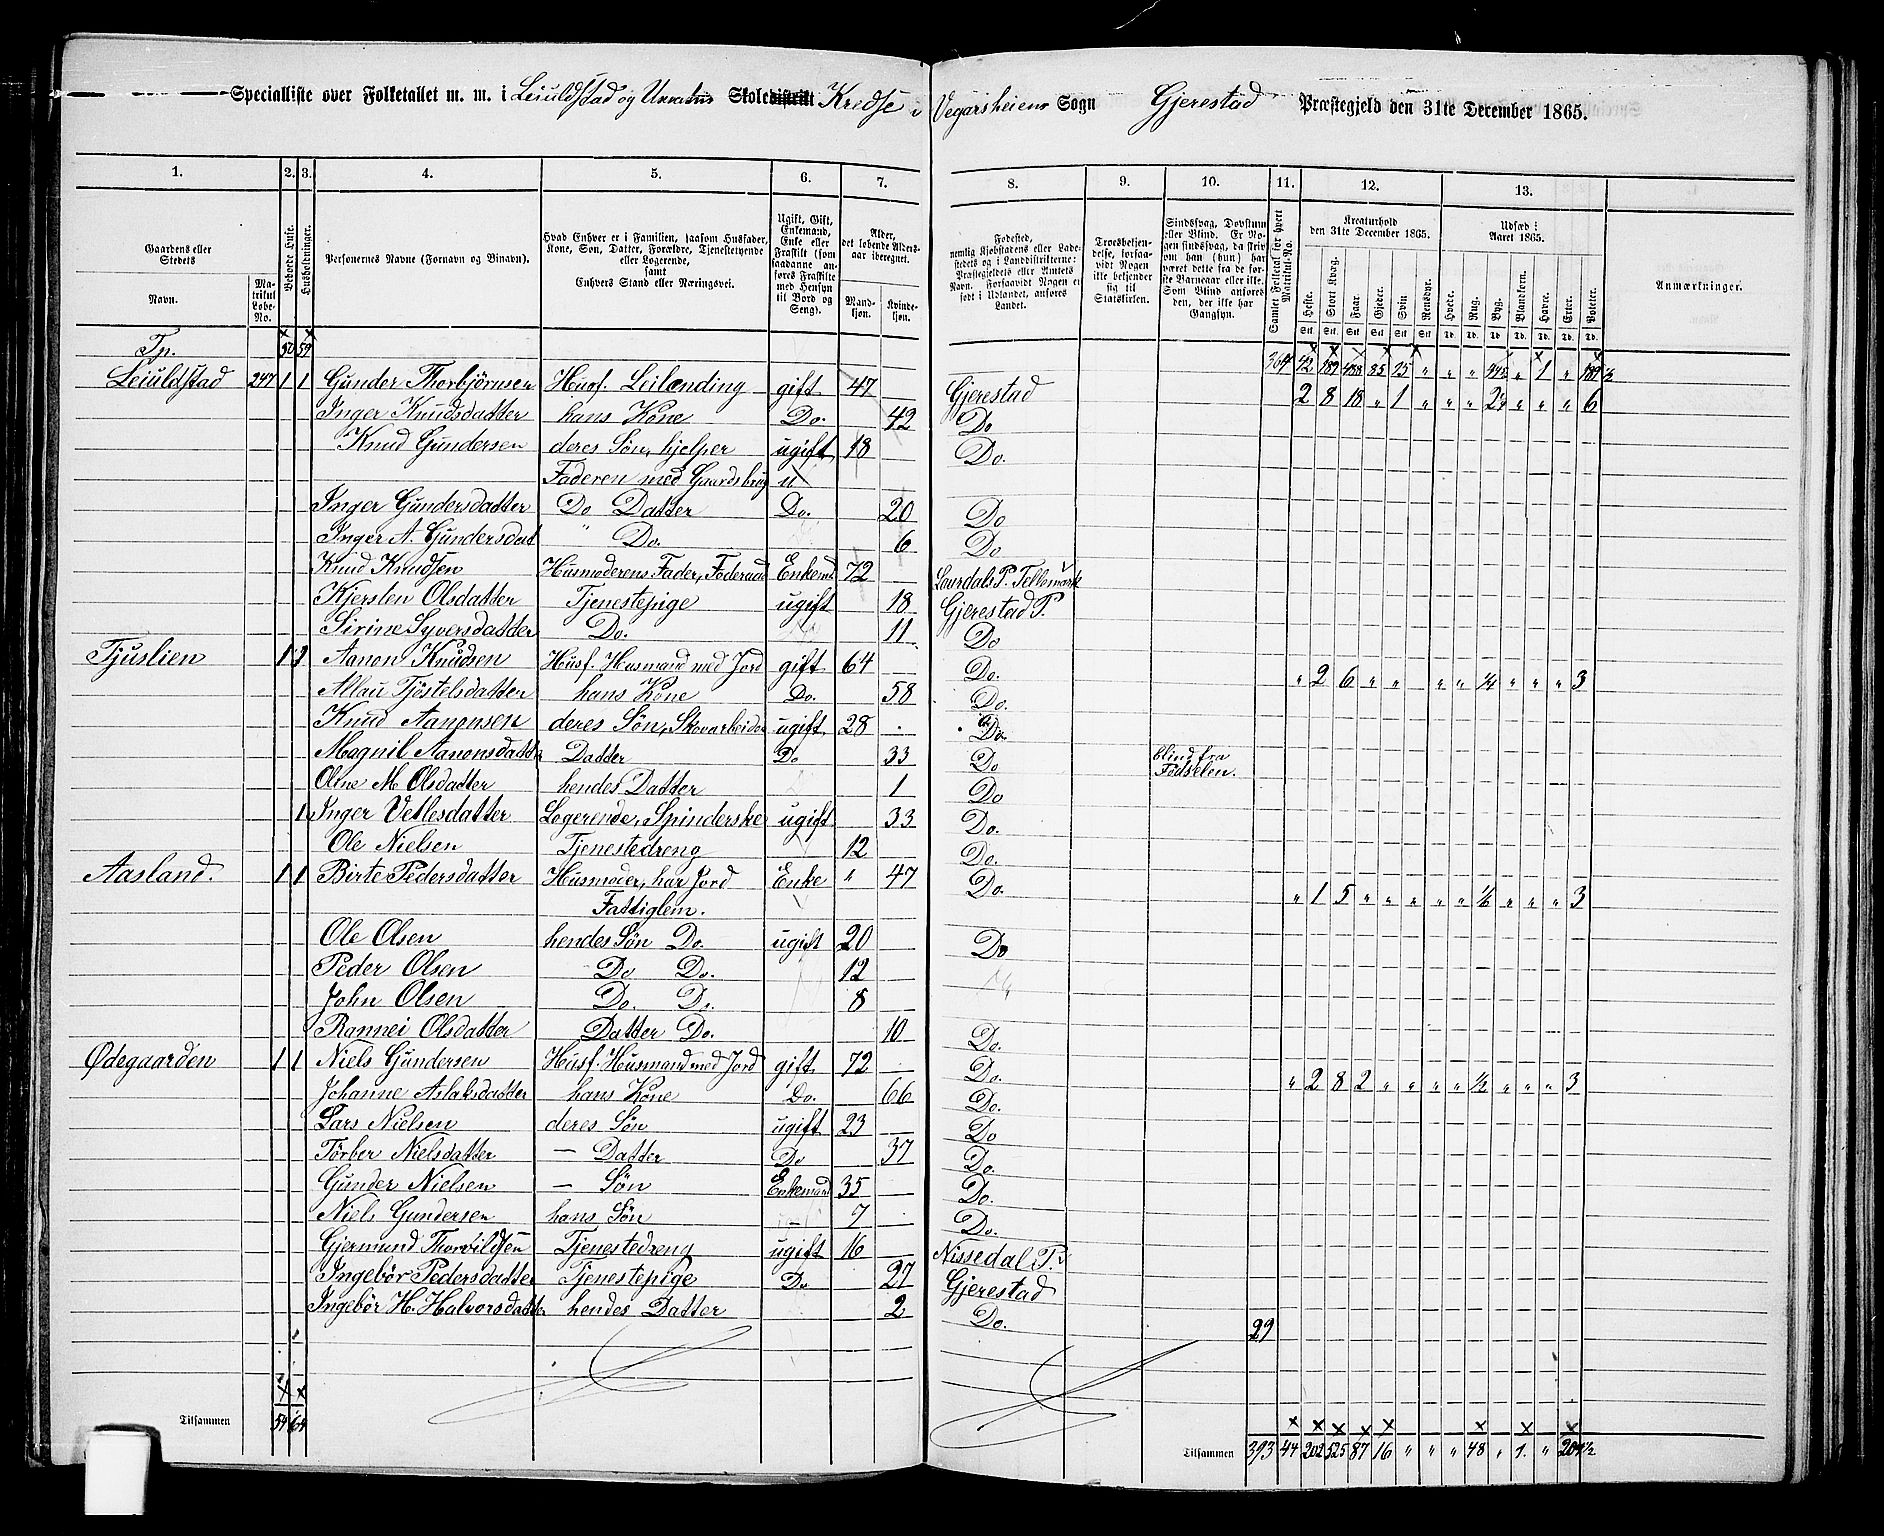 Specialliste over Folketallet m. m. i Leiuldstad og Skoledistrikt Kredse i Vegarsheiens Sogn Gjerestad Præstegjeld den 31te December 1865.
1. 2. 3. 4. 5. 6. 7. 8. 9. 10. 11. 12. 13.
Gaardens eller Stedets Navn.
Matrikul Løbe-No.
Beboede Huse.
Husholdninger.
Personernes Navne (Fornavn og Binavn).
Hvad Enhver er i Familien, saasom Husfader, Kone, Søn, Datter, Forældre, Tjenestetyende eller Logerende, samt Enhvers Stand eller Næringsvei.
Ugift, Gift, Enkemand, Enke eller Fraskilt (som saadanne anføres Fraskilte med Hensyn til Bord og Seng).
Alder, det løbende Alders-aar iberegnet.
Mand-kjøn. Kvinde-kjøn.
Fødested, nemlig Kjøbstadens eller Ladestedets og i Landdistrikterne: Præstegjeldets eller Amtets Navn. Forsaavidt Nogen er født i Udlandet, anføres Landet.
Troesbekjendelse, forsaavidt Nogen ikke bekjender sig til Statskirken.
Sindssvag, Døvstum eller Blind. Er Nogen sindssvag, da skriv om han (hun) har været dette fra de første Barneaar eller ikke. Som Blind anføres den, der ikke har Gangsyn.
Samlet Folketal for hvert Matrikul-No.
Kreaturhold den 31te December 1865.
Heste. Stort Kvæg. Faar. Gjeder. Svin. Rensdyr.
Udsæd i Aaret 1865.
Hvede. Rug. Byg. Blandkorn. Havre. Erter. Poteter.
Anmærkninger.
Tr. 50 59 364 42 189 35 25 " " " " 1 "
Leiuldstad 247 1 1 Gunder Thorbjørnsen Husf. Leilænding gift 47 Gjerestad 2 8 18 " 1 " " " " " " 6
Inger Knudsdatter hans Kone Do. 42 Do
Knud Gundersen deres Søn, hjelper ugift 18 Do.
Faderen med Gaardsbrug
Inger Gundersdatter Do Datter Do. 20 Do
Inger A. Gundersdat " Do. 6 Do
Knud Knudsen Husmoderens Fader, Føderaad Enkem 72 Laurdals P. Tellemark
Kjersten Olsdatter Tjenestepige ugift 18 Gjerestad P.
Sirine Syversdatter Do. 11 Do
Tjuslien 1 1 Aanon Knudsen Husf. Husmand med Jord gift 64 Do. " 2 6 " " " " 1/4 " " " 3
Allau Tjøstelsdatter hans Kone Do. 58 Do.
Knud Aanonsen deres Søn, Skovarbeider ugift 28 Do.
Magnil Aanonsdatter Datter Do 33 Do blind fra Fødselen.
Oline M. Olsdatter hendes Datter 1 Do
1 Inger Vetlesdatter Logerende, Spinderske ugift 33 Do.
Ole Nielsen Tjenestedreng 12 Do.
Aasland. 1 1 Birte Pedersdatter Husmoder, har Jord Enke " 47 Do. " 1 5 " " " " " 1/6 " " " 3
Fattiglem.
Ole Olsen hendes Søn Do. ugift 20 Do
Peder Olsen Do Do. 12
John Olsen Do. Do. 8
Rannei Olsdatter Datter Do. 10 Do.
Ødegaarden 1 1 Niels Gundersen Husf. Husmand med Jord gift 72 Do. " 2 8 2 " " " " 1/2 " " " 3
Johanne Aslaksdatter hans Kone Do. 66 Do.
Lars Nielsen deres Søn ugift 23 Do
Tørber Nielsdatter — Datter Do 37 Do.
Gunder Nielsen — Søn Enkemand 35 Do.
Niels Gundersen hans Søn - 7 Do.
Gjermund Thorvildsen Tjenestedreng ugift 16 Nissedal P.
Ingebør Pedersdatter Tjenestepige Do 27 Gjerestad
Ingebør H. Halvorsdatter hendes Datter 2 Do. 29
Tilsammen 54 64
Tilsammen 393 44 202 525 87 16 " " " 48 " 1. " 204 1/2